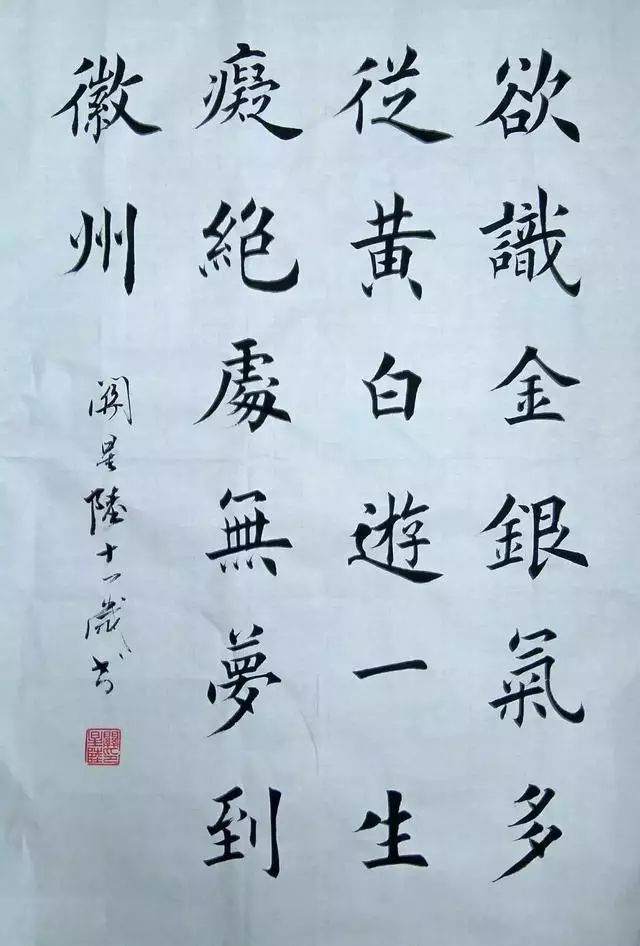 欲識金銀氣多
從黄白遊一生
癡絕處無夢到
徽州
關星陸十一歲書